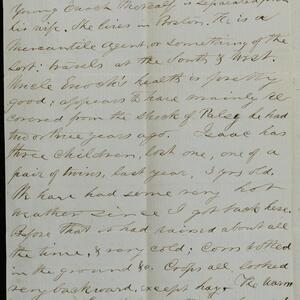 Young Enoch Metcalf is separated from
his wife. She lives in Boston. He is a
Mercantile Agent, or something of the
sort: travels at the South & West.
Uncle Enoch's health is pretty
good; appears to have mainly re
covered from the shock of Palsy he had
two or three years ago. Isaac has
three children, lost one, one of a
pair of twins, last year, 3 yrs old.
We have had some very hot
weather since I got back here.
Before that it had rained about all
the time, & very cold. Corn rotted
in the ground &c. Crops all looked
very backward, except hay. The warm